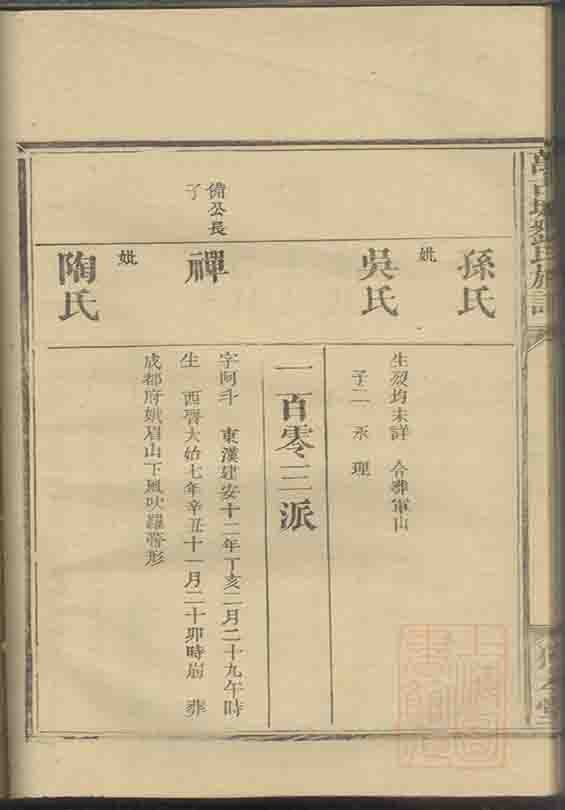 孫氏
妣
吳氏
生歿均未詳 合葬軍山
子二 永 理
一百零三派
備公長
子
禪
字阿斗 東漢建安十二年丁亥二月二十九午時
生 西晉大始七年辛丑十一月二十卯時崩 葬
妣
陶氏
成都府娥眉山下風吹羅帶形